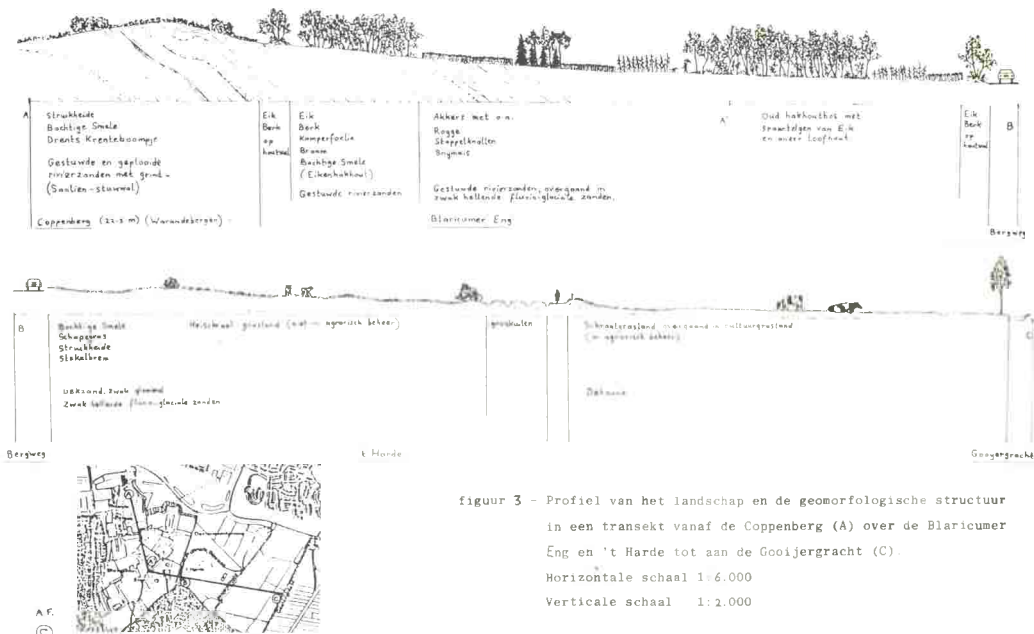 A
Struikheide
Bochtige Smele
Drents Krenteboompje
Gestuwde en geplooide
rivierzanden met grind-
(Saalien-stuwwal)
Coppenberg (22.5 m) (Warandebergen)
Eik
Berk
op
houtwal
Eik
Berk
Kamperfoelie
Braam
Bochtige Smele
(Eikenhakhout)
Gestuwde rivierzanden
Akkers met o.a.
Rogge
Stoppelknollen
Snijmais
Gestuwde rivierzanden, overgaand in
zwak hellende fluvio-glaciale zanden.
Blaricumer Eng
A'
Oud hakhoutbos met
spaartelgen van Eik
en ander loofhout.
Eik
Berk
op
houtwal
B
Bergweg
B
Bochtige Smele
Schapegras
Struikheide
Stekelbrem
Heischraal grasland (niet in agrarisch beheer)
Dekzand, zwak
zwak hellende fluvio-glaciale zanden
Bergweg
't Harde
graskuilen
Schraalgrasland overgaand in cultuurgrasland
(in agrarisch beheer)
Dekzand
C
Gooyergracht
A.F.
figuur 3 - Profiel van het landschap en de geomorfologische structuur
in een transekt vanaf de Coppenberg (A) over de Blaricumer
Eng en 't Harde tot aan de Gooijergracht (C).
Horizontale schaal 1:6.000
Verticale schaal 1:2.000